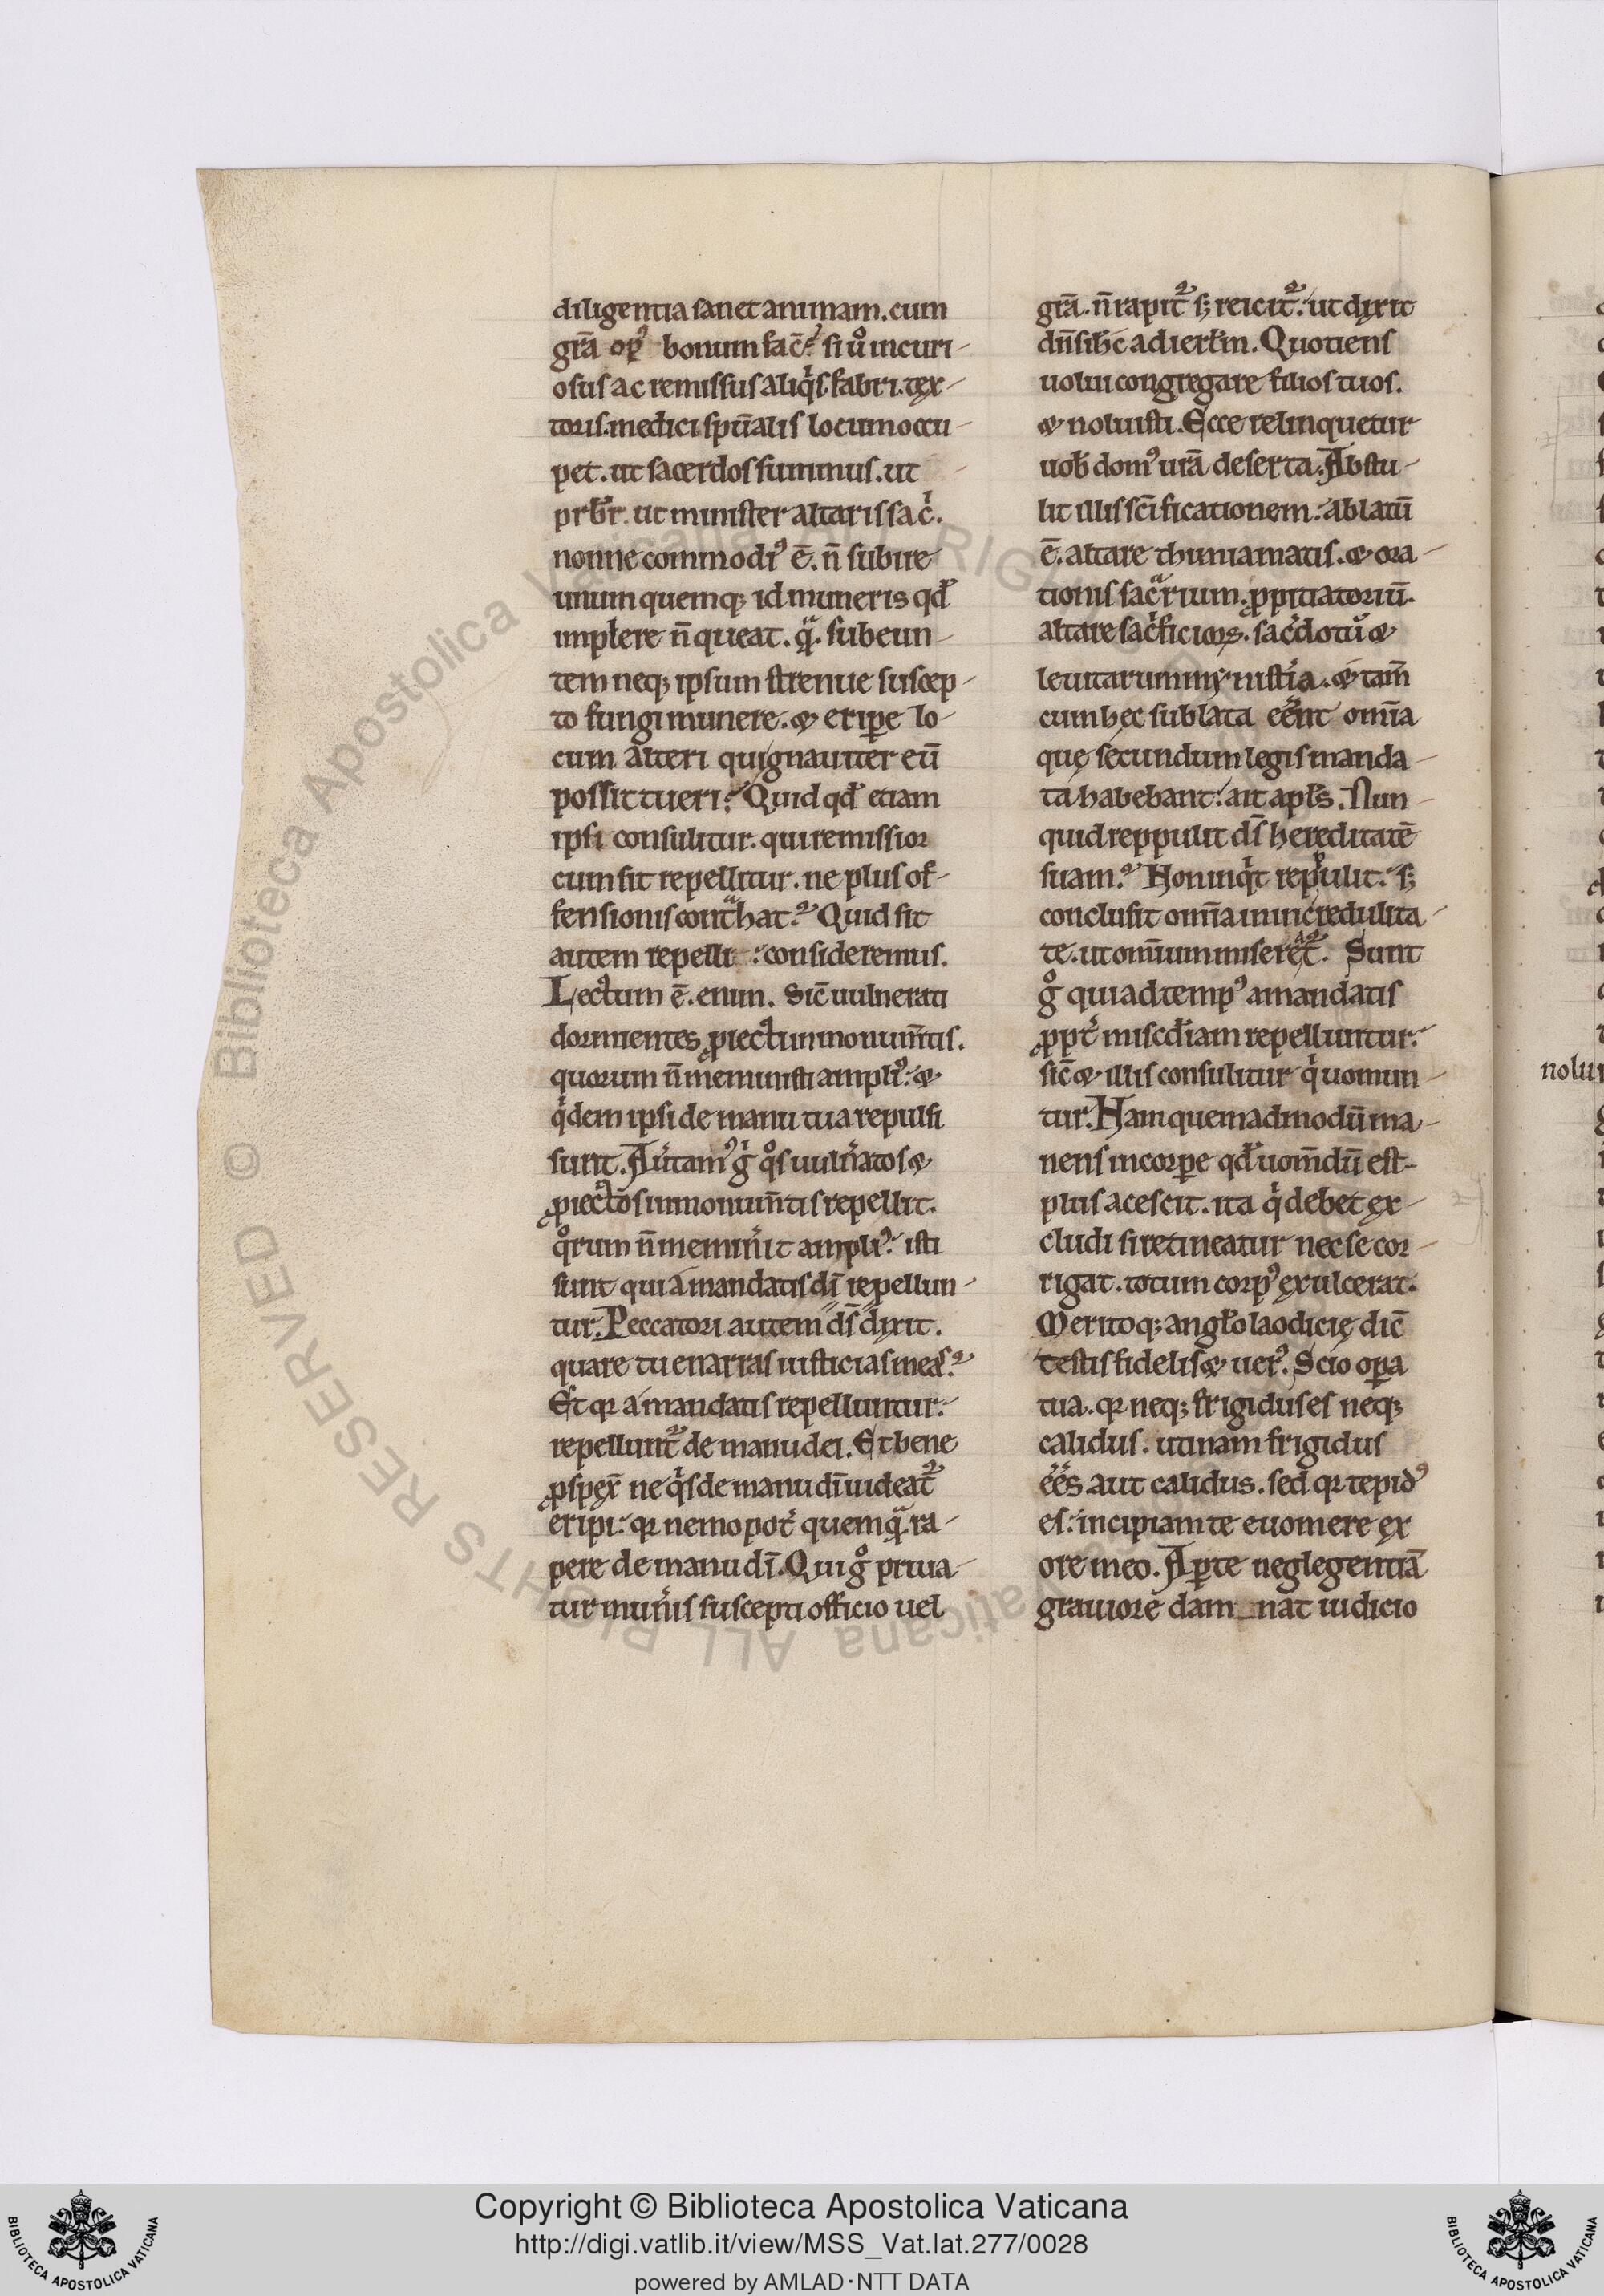 diligentia sanet animam. cum
gr̄a op̱ꝰ bonum fac̄? si ů incuri-
osus ac remissus aliqͥs. fabri. tex-
toris. medici spūalis locum occu-
pet. ut sacerdos summus. ut
prb̄r. ut minister altaris sac̓.
nonne commodiꝰ ē. n̄ subire
unum quemq; id muneris qđ
implere n̄ queat. qͣ̄. subeun-
tem neq; ipsum strenue suscep-
to fungi munere. & eriꝑe lo-
cum alteri qui gnauiter eū
possit tueri? Quid qđ etiam
ipsi consulitur. qui remissior
cum sit repellitur. ne plus of-
fensionis contͣhat? Quid sit
autem repelli : consideremus.
Lectum ē. enim. Sic̄ uulnerati
dormientes ꝓiecti in monum̄tis.
quorum n̄ meministi ampliꝰ: &
qͥdem ipsi de manu tua repulsi
sunt. Aũtamꝰ gͥ qͦs uuln̓atos &
ꝓiectos in monum̄tis repellit.
qͦrum n̄ memin̓it ampliꝰ: isti
sunt qui a mandatis dī repellun-
tur. Peccatori autem d̄s dixit.
quare tu enarras iusticias meas?
Et qꝛ a mandatis repelluntur:
repellunt᷑ de manu dei. Et bene
ꝓspex̄ ne qͥs de manu dī uideat᷑
eripi: qꝛ nemo pot̓ quemqͣ̄. ra-
pere de manu dī. Qui gͦ priua-
tur mun̓is suscepti officio uel
gr̄a. n̄ rapit᷑ s; reicit᷑: ut dixit
dn̄s ih̄c ad ierl̄m. Quotiens
uolui congregare filios tuos.
& noluisti. Ecce relinquetur
uob̄ domꝰ ur̄a deserta. Abstu-
lit illis sc̄ificationem: ablatū
ē. altare thimiamatis. & ora-
tionis sacͣrium. ꝓpitiatoriū.
altare sac̓ficioꝝ. sac̓dotū &
leuitarum mynist̓ia. & tam̄
cum hęc sublata ee͂nt om̄ia
quę secundum legis manda-
ta habebant: ait apl̄s. Nun-
quid reppulit d̄s hereditatē
suam? Non inqͥt repulit: s;
conclusit om̄ia in incredulita-
te. ut om̄ium miseret᷑. Sunt
gͦ qui ad tempꝰ a mandatis
ꝓpt̓ misc̄diam repelluntur:
sic̄ & illis consulitur qͥ uomun-
tur. Nam quemadmodū ma-
nens in corꝑe qđ uom̄dū est-
plus acescit. ita qͥ debet ex-
cludi si retineatur nec se cor-
rigat. totum corpꝰ exulcerat.
Meritoq; angl̄o laodicię dic̄
testis fidelis & uerꝰ. Scio oꝑa
tua. qꝛ neq; frigidus es neq;
calidus. utinam frigidus
ee͂s aut calidus. sed qꝛ tepidꝰ
es: incipiam te euomere ex
ore meo. Aꝑte neglegentiā
grauiore dam_nat iudicio
nolu
Copyright © Biblioteca Apostolica Vaticana
http://digi.vatlib.it/view/MSS_Vat.lat.277/0028
powered by AMLAD·NTT DATA
BIBLIOTECA APOSTOLICA VATICANA
BIBLIOTECA APOSTOLICA VATICANA
© Biblioteca Apostolica Vaticana ALL RIGHTS RESERVED